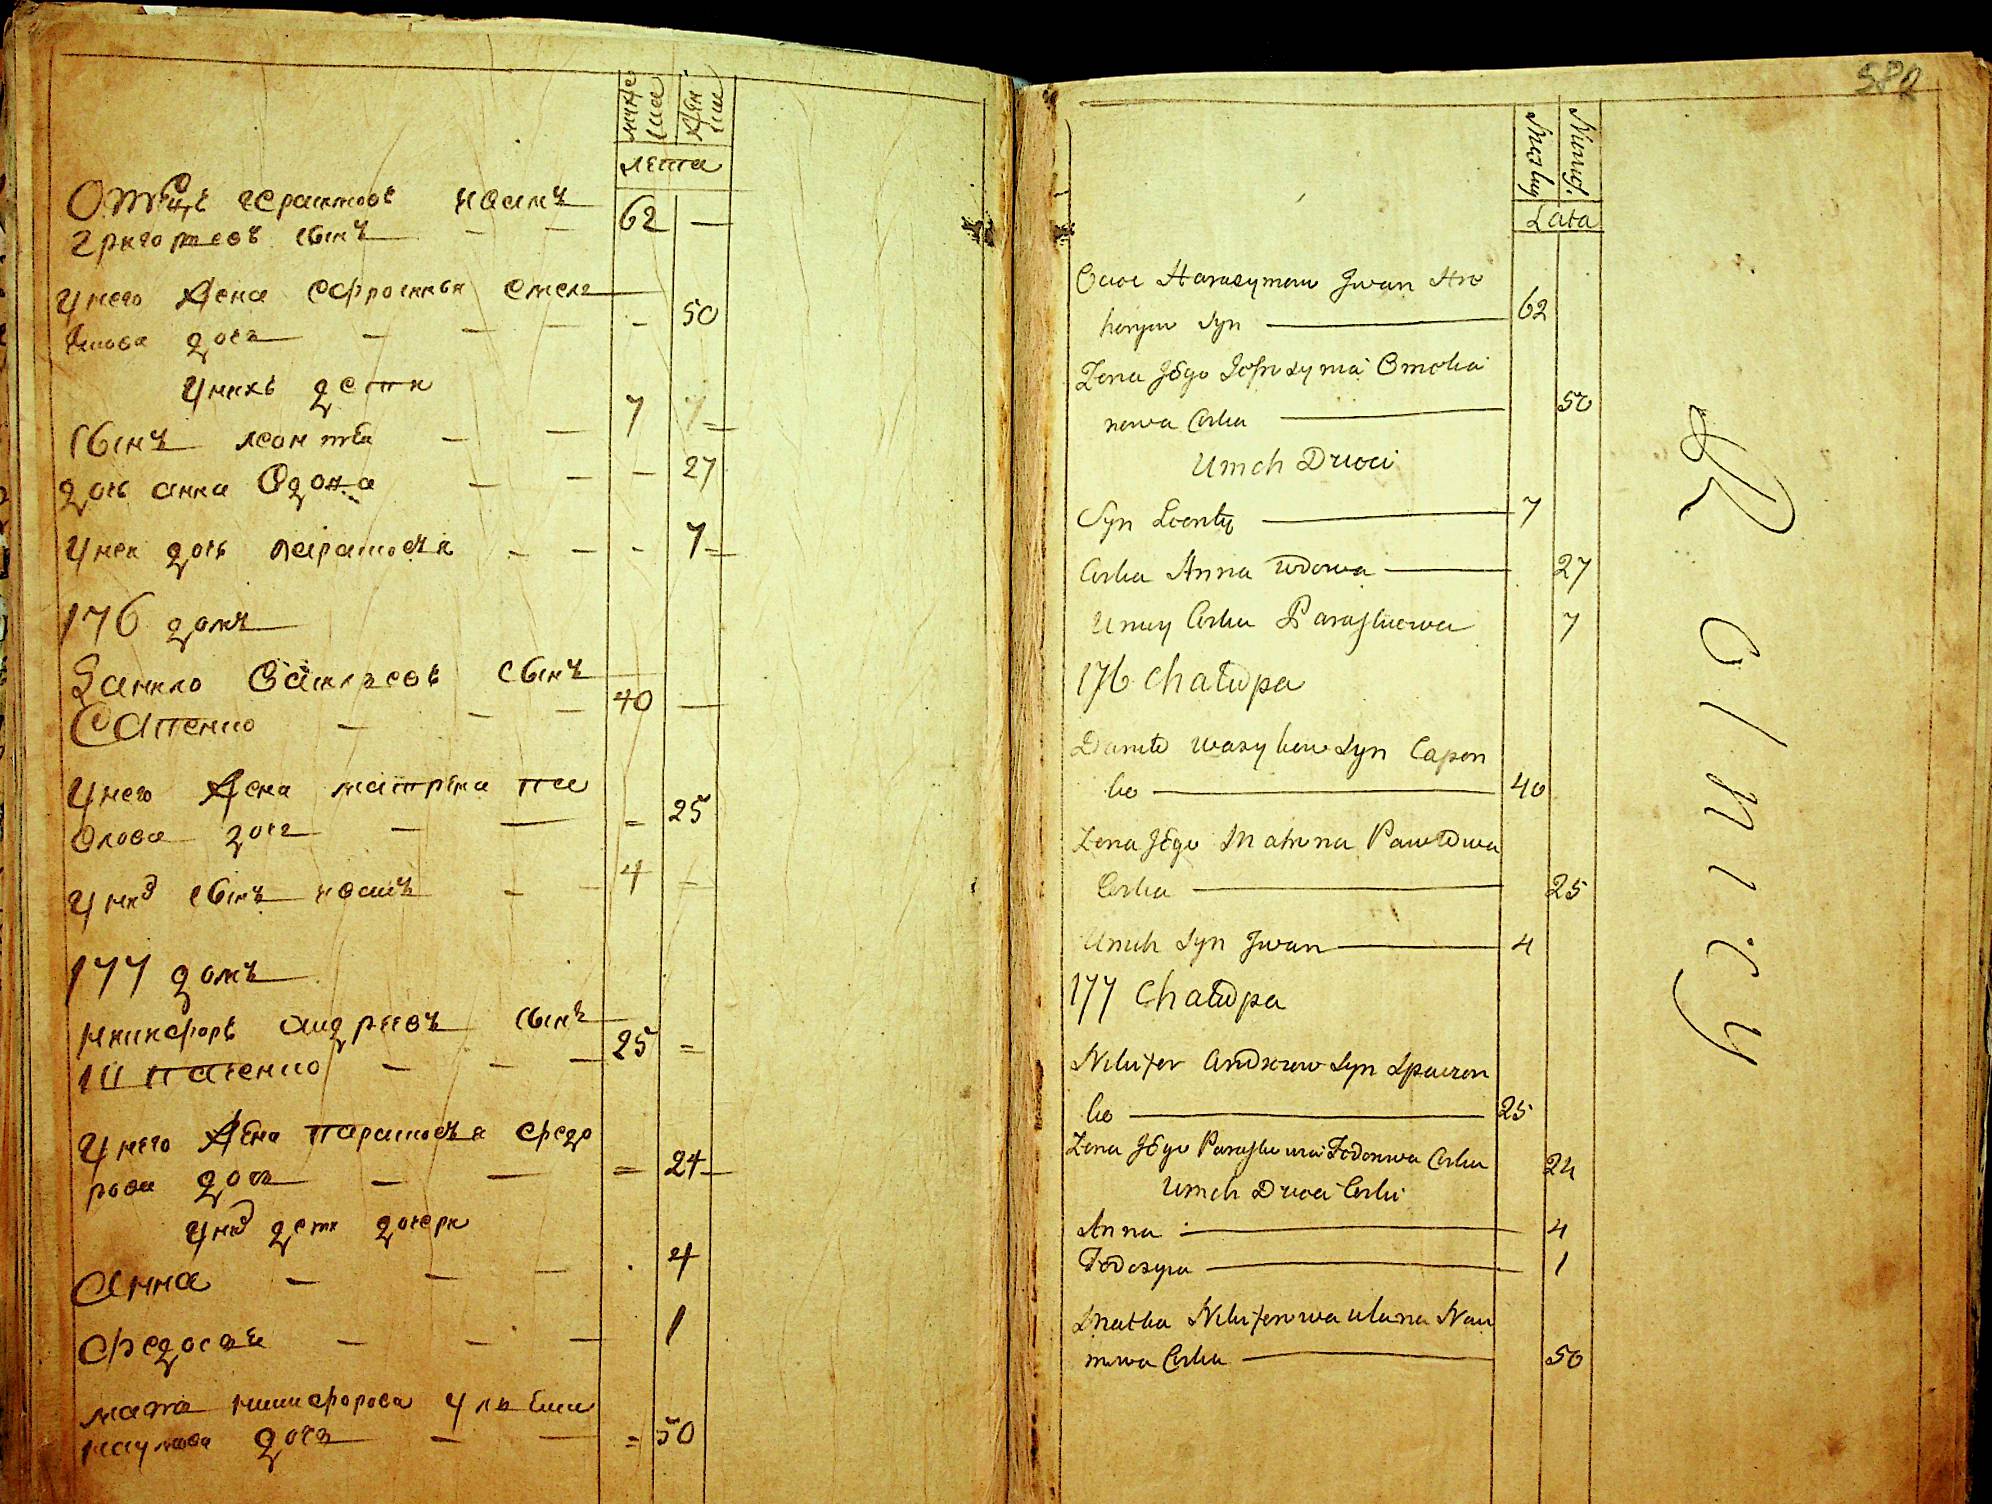 муже
ска
жен
ска
лета
Отецъ герасимовъ иванъ
григориевъ сынъ — — 62 —
Унего жена Софроиния омеля
нова дочь — — — - 50
Унихъ дети
Сынъ леонтей — — 7
дочь анна вдова — — — 27
Унеи дочь парасковья - - - 7
176 домъ
Данило василъевъ сынъ
Сапенко — — — 40 —
Унего жена матрена па
влова дочь — — = 25
Уних сынъ иванъ — - 4 —
177 домъ
Никифоръ андреевъ сынъ
Шпаченко — — — 25 =
Унего жена парасковья федо
рова дочь — — = 24
Уних дети дочери
Анна — — — . 4
Федосея — — — 1
мать никифорова ульяна
наумова дочь — — = 50
582
Męzkiy
Niewiś.
Lata
Ociec Harasymow Jwan Hre
horyew Syn — 62
Zona Jego Sofrosyma Omelia
nowa Corka — 50
Unich Dzieci
Syn Leonty — 7
Corka Anna wdowa — 27
Uniey Corka Paraskiewa 7
176 Chałupa
Daniło wasylew Syn Capen
ko — 40
Zona Jego Matrona Pawłowa
Corka — 25
Unich Syn Jwan — 4
177 Chałupa
Nikifor Andreew Syn Spaczen
ko — 25
Zona Jego Paraskiewia Fedorowa Corka 24
Unich Dzieci Corki
Anna — 4
Fedosyia — 1
Matka Nikiforowa Ulana Nau
mowa Corka — 50
Rolnicy